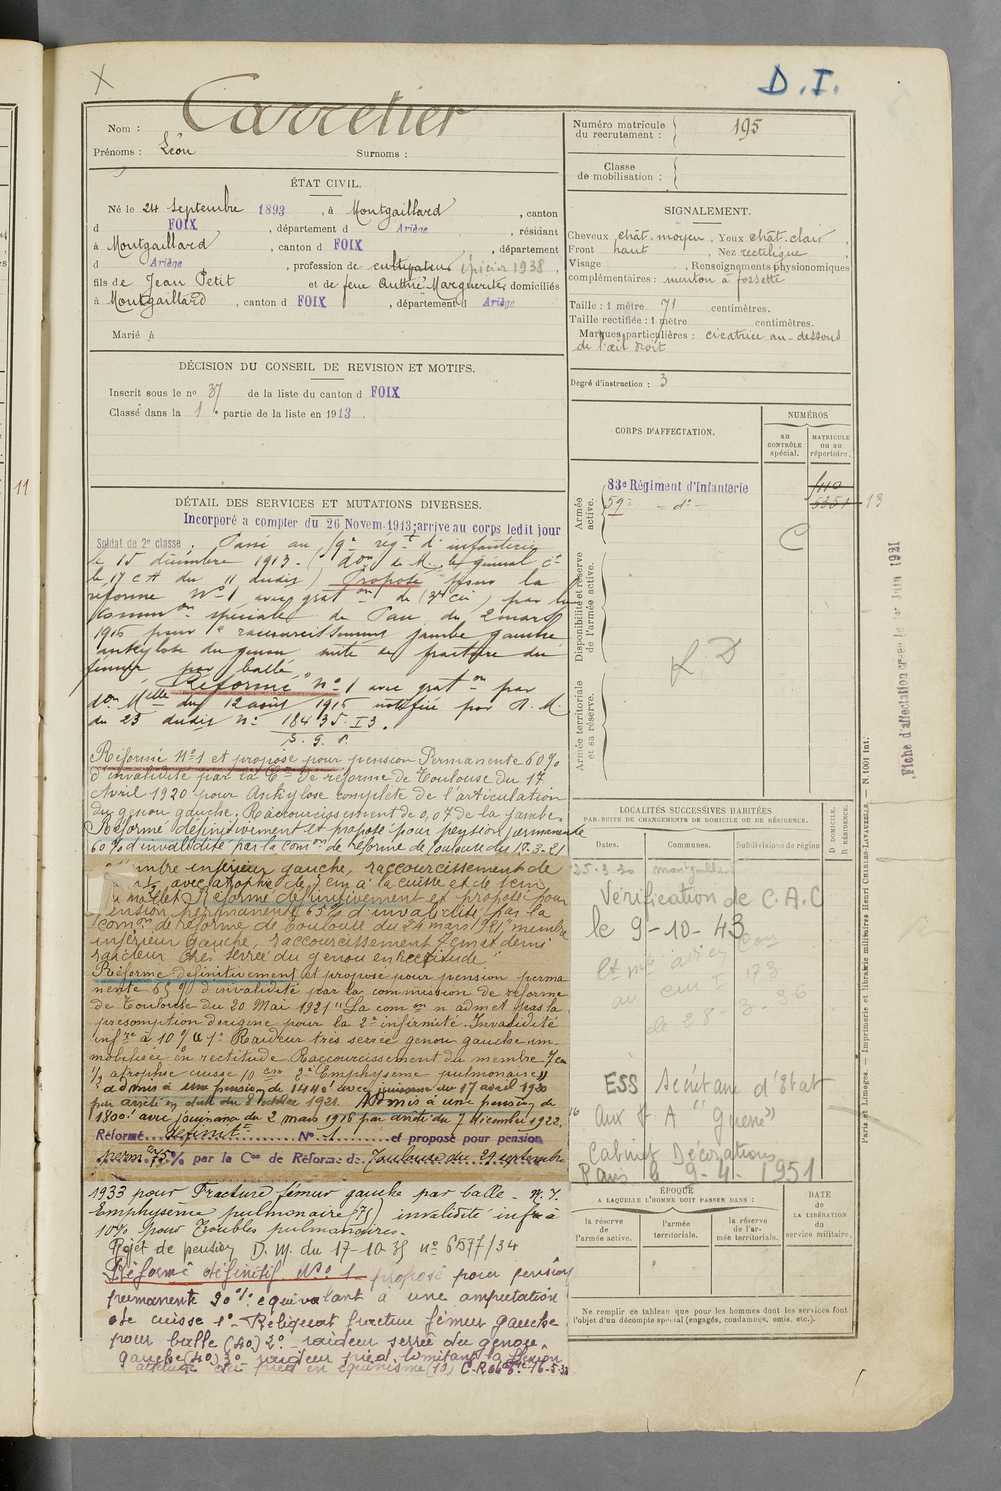 X
D. I.
Nom : Carretier
Prénoms : Léon Surnoms :
Numéro matricule du recrutement : 195
Classe de mobilisation :
ÉTAT CIVIL.
Né le 24 Septembre 1893, à Montgaillard, canton
d FOIX, département d Ariège, résidant
à Montgaillard, canton d FOIX, département
d Ariège, profession de cultivateur épicier 1938,
fils de Jean Petit et de feue Authié Marguerite, domiciliés
à Montgaillard, canton d FOIX, département d Ariège
Marié à
SIGNALEMENT.
Cheveux chât. moyen, Yeux chât. clair,
Front haut, Nez rectiligne,
Visage , Renseignements physionomiques
complémentaires : menton à fossette
Taille : 1 mètre 71 centimètres.
Taille rectifiée : 1 mètre centimètres.
Marques particulières : cicatrice au-dessous
de l'œil droit
Degré d'instruction : 3
DÉCISION DU CONSEIL DE REVISION ET MOTIFS.
Inscrit sous le nº 37 de la liste du canton d FOIX
Classé dans la 1e partie de la liste en 1913.
CORPS D'AFFECTATION.
NUMÉROS
au CONTRÔLE spécial.
MATRICULE ou au répertoire.
Armée active.
83e Régiment d'Infanterie
59e - dº -
5351
13
Disponibilité et réserve de l'armée active.
Armée territoriale et sa réserve.
11
DÉTAIL DES SERVICES ET MUTATIONS DIVERSES.
Incorporé a compter du 26 Novem. 1913; arrive au corps ledit jour
Soldat de 2e classe. Passé au 59e régt d'infanterie
le 15 décembre 1913. (don de M. le général Ct
le 17 CA du 11 dudit) Proposé pour la
réforme Nº 1 avec graton de (3e cie) par la
Common spéciale de Pau du 2 mars
1916 pour raccourcissement jambe gauche
ankylose du genou suite de fracture du
fémur par balle
Réformé nº 1 avec graton par
don Melle du 12 août 1916 notifiée par D. M.
du 23 dudit Nº 18435. I3.
Réformé Nº 1 et proposé pour pension Permanente 60%
d'invalidité par la Con de réforme de Toulouse du 17
Avril 1920 pour Ankylose complète de l'articulation
du genou gauche. Raccourcissement de 0,07 de la jambe.
Réformé définitivement et proposé pour pension permanente
60% d'invalidité par la comon de réforme de Toulouse du 17-3-21
membre inférieur gauche, raccourcissement de
avec atrophie de 7 cm à la cuisse et de 1 cm
mollet Réformé définitivement et proposé pour
pension permanente 65% d'invalidité par la
comon de réforme de Toulouse du 24 mars 1921 "membre
inférieur gauche, raccourcissement 7 cm et demi
raideur très serrée du genou en rectitude"
Réformé définitivement et proposé pour pension perma
nente 65% d'invalidité par la commission de réforme
de Toulouse du 20 Mai 1921 "La comon n'admet pas la
présomption d'origine pour la 2e infirmité. Invalidité
infre à 10% 1º Raideur très serrée genou gauche im-
mobilisée en rectitude Raccourcissement du membre 7 cm
1/2 atrophie cuisse 10 cm 2º Emphysème pulmonaire"
admis à une pension de 1440f avec jouissance du 17 avril 1920
par arrêté en date du 8 octobre 1921. Admis à une pension de
1800f avec jouissance du 2 mars 1916 par arrêté du 7 décembre 1922.
Réformé définitt Nº 1 et proposé pour pension
perm 75% par la Con de Réforme de Toulouse du 29 septembre
1933 pour Fracture fémur gauche par balle - N. I.
Emphysème pulmonaire (75) invalidité infre à
10% pour Troubles pulmonaires.
Rejet de pension D. M. du 17-10-35 nº 6577/34
Réformé définitif Nº 1 proposé pour pension
permanente 90% équivalant à une amputation
de cuisse 1º - Reliquat fracture fémur gauche
pour balle (40) 2º - raideur serrée du genou
gauche (40) 3º - raideur pied limitant la flexion
attitude du pied en équinisme (10)
LOCALITÉS SUCCESSIVES HABITÉES
PAR SUITE DE CHANGEMENTS DE DOMICILE OU DE RÉSIDENCE.
Dates.
Communes.
Subdivisions de région
D DOMICILE.
R RÉSIDENCE.
25.3.30 montgaillard
Vérification de C.A.C
le 9-10-43
28-3-36
ESS Secrétaire d'Etat
Aux F. A "Guerre"
Cabinet Décorations
Paris le 9-4-1951
ÉPOQUE
A LAQUELLE L'HOMME DOIT PASSER DANS :
la réserve de l'armée active.
l'armée territoriale.
la réserve de l'armée territoriale.
DATE DE LA LIBÉRATION du service militaire.
Ne remplir ce tableau que pour les hommes dont les services font
l'objet d'un décompte spécial (engagés, condamnés, omis, etc.).
Fiche d'affectation créée le 1er Juin 1921
Paris et Limoges. — Imprimerie et librairie militaires Henri CHARLES-LAVAUZELLE. — N. 1001 Int.